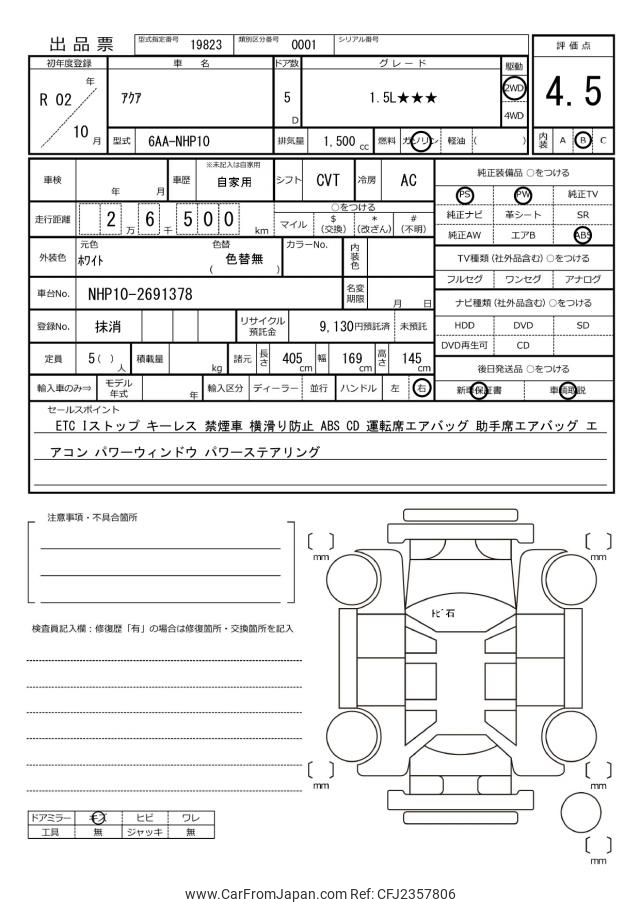 出品票 型式指定番号 19823 類別区分番号 0001 シリアル番号
評価点
4.5
内装 A B C
初年度登録 車名 ドア数 グレード 駆動
R 02 年 ｱｸｱ 5 D 1.5L★★★ 2WD
4WD
10 月 型式 6AA-NHP10 排気量 1,500 cc 燃料 ガソリン 軽油 ( )
※未記入は自家用
車検 年 月 車歴 自家用 シフト CVT 冷房 AC
純正装備品 ○をつける
PS PW 純正TV
純正ナビ 革シート SR
純正AW エアB ABS
走行距離 2 万 6 千 5 0 0 km
○をつける
マイル $(交換) *(改ざん) #(不明)
外装色 元色 ﾎﾜｲﾄ 色替 ( 色替無 ) カラーNo. 内装色
TV種類(社外品含む) ○をつける
フルセグ ワンセグ アナログ
車台No. NHP10-2691378 名変期限 月 日
ナビ種類(社外品含む) ○をつける
HDD DVD SD
DVD再生可 CD
登録No. 抹消 リサイクル預託金 9,130円預託済 未預託
定員 5( ) 人 積載量 kg 諸元 長さ 405 cm 幅 169 cm 高さ 145 cm
後日発送品 ○をつける
新車保証書 車輌取説
輸入車のみ⇒ モデル年式 年 輸入区分 ディーラー 並行 ハンドル 左 右
セールスポイント
ETC Iストップ キーレス 禁煙車 横滑り防止 ABS CD 運転席エアバッグ 助手席エアバッグ エ
アコン パワーウィンドウ パワーステアリング
注意事項・不具合箇所
検査員記入欄：修復歴「有」の場合は修復箇所・交換箇所を記入
mm
mm
ﾄﾋﾞ石
mm
mm
mm
ドアミラー キズ ヒビ ワレ
工具 無 ジャッキ 無
www.CarFromJapan.com Ref: CFJ2357806